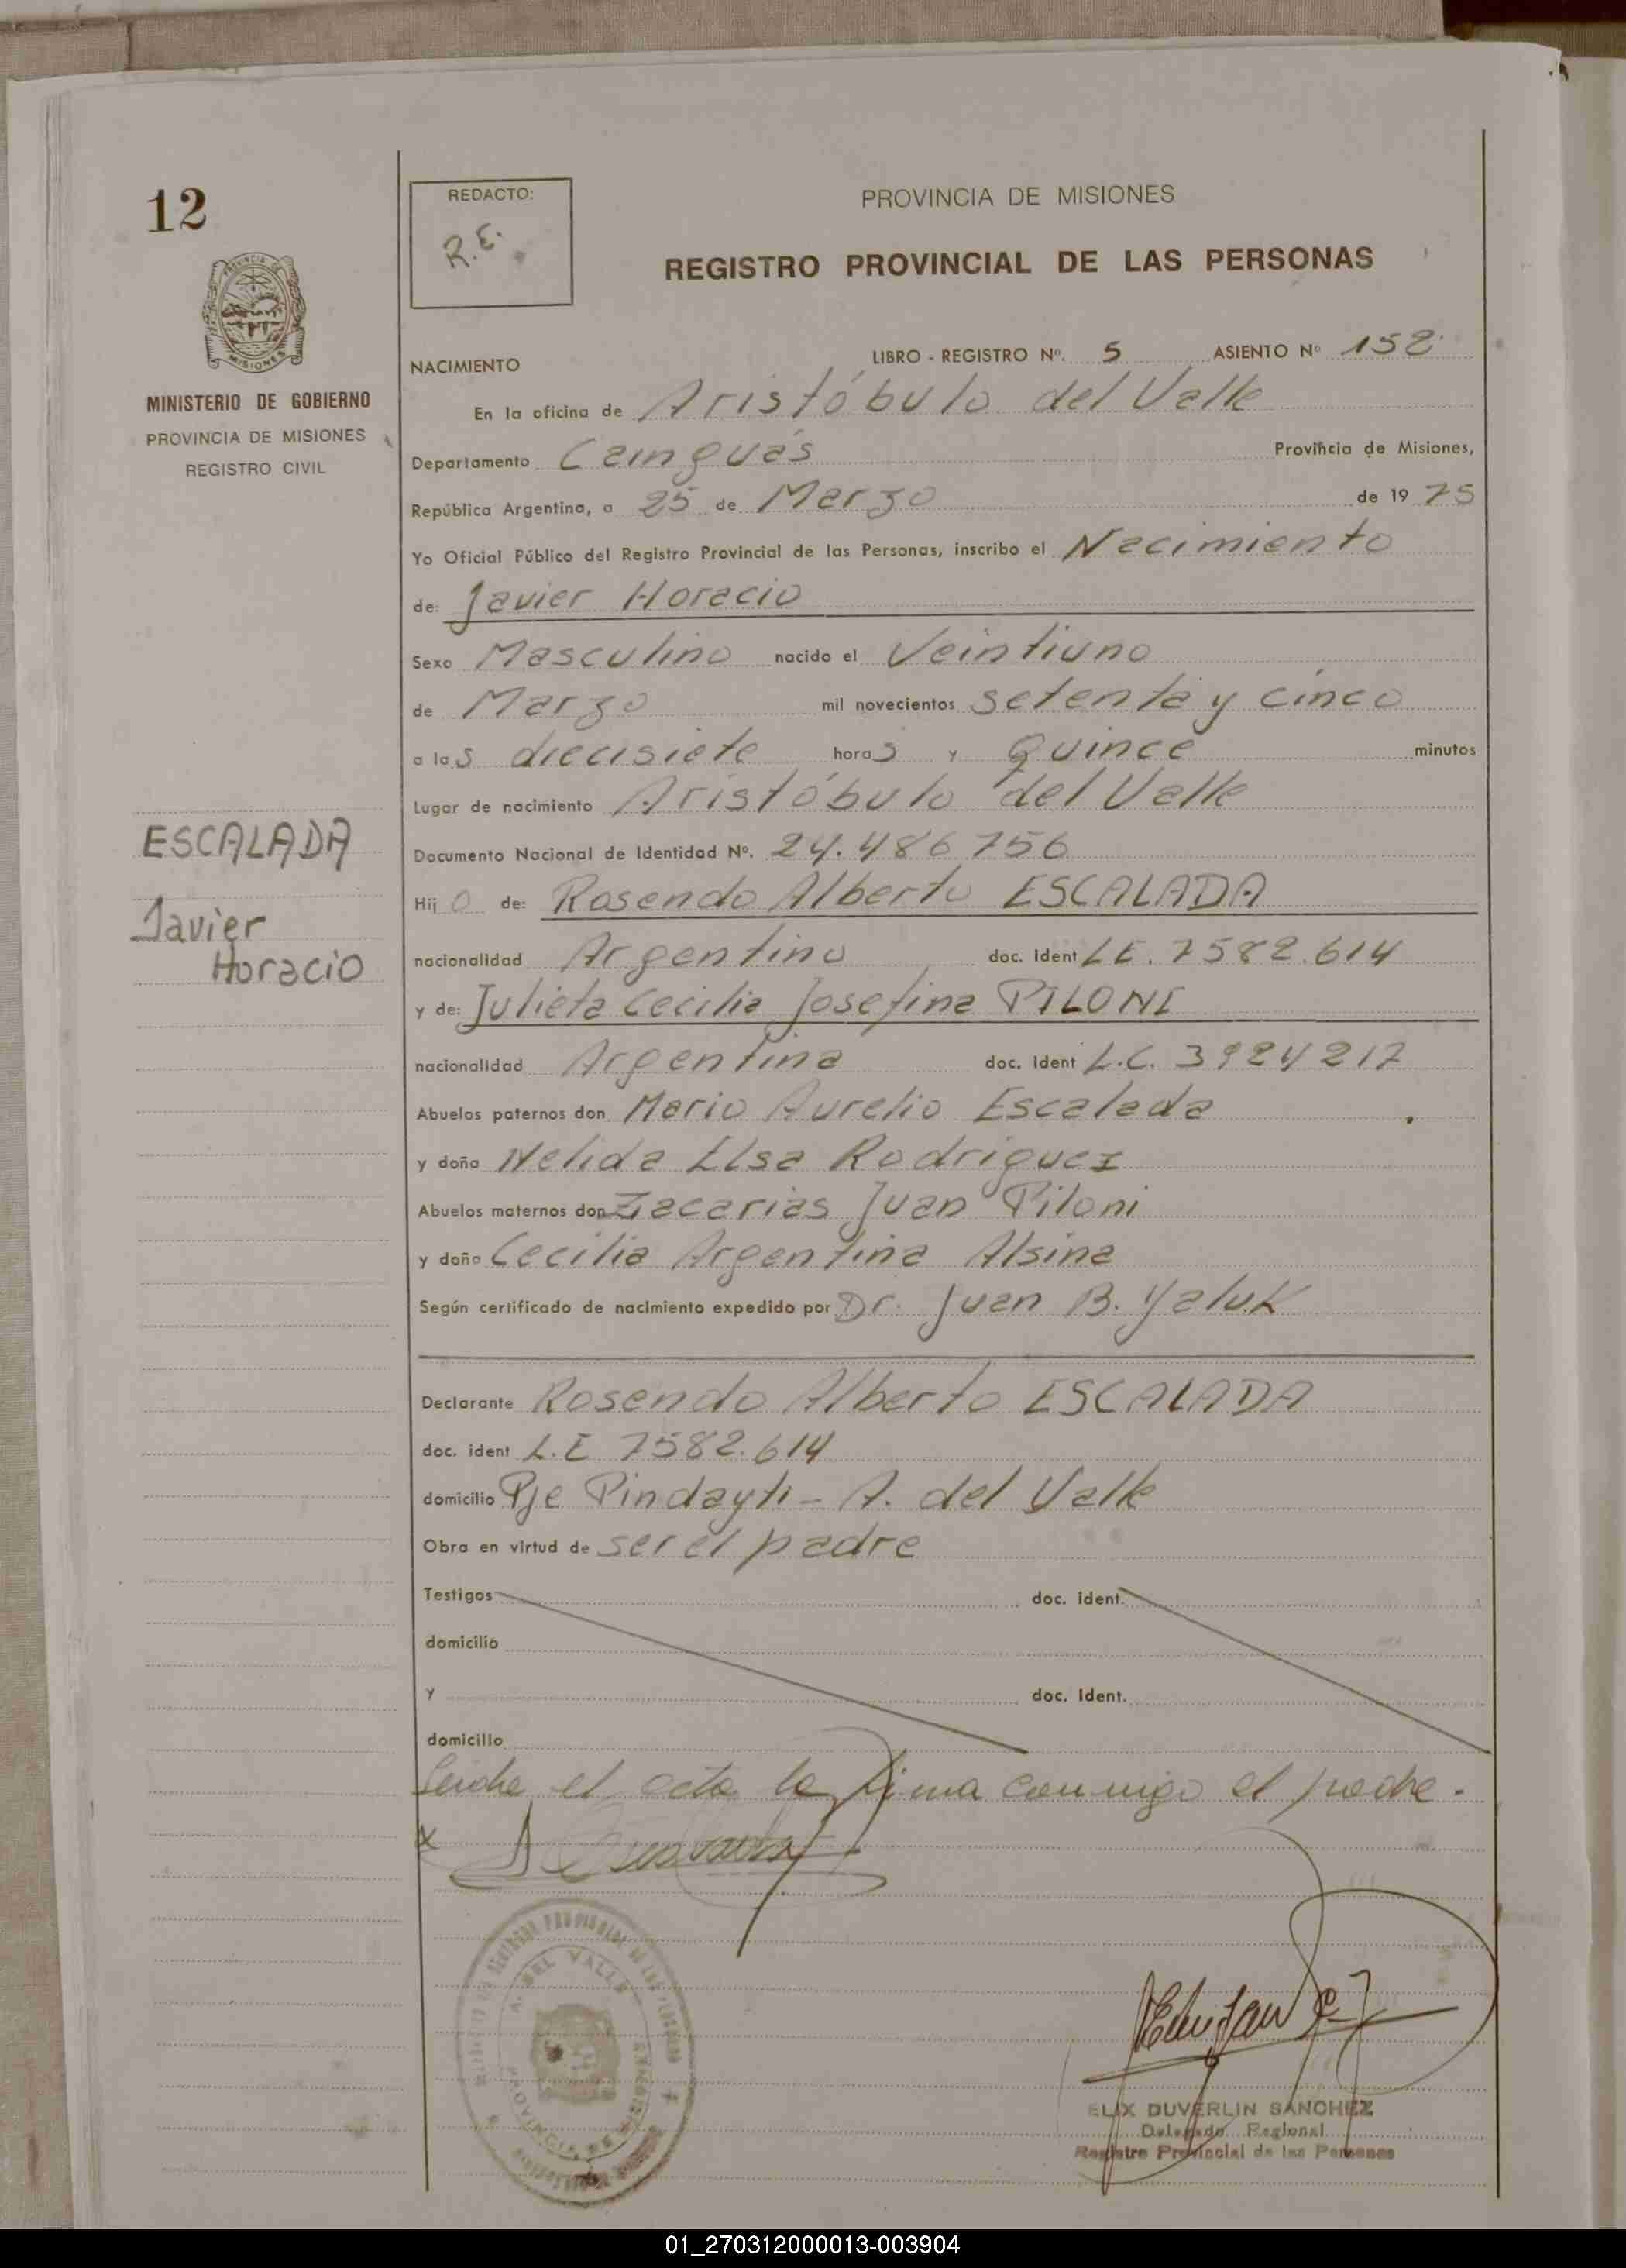 12
PROVINCIA DE
MISIONES
MINISTERIO DE GOBIERNO
PROVINCIA DE MISIONES
REGISTRO CIVIL
ESCALADA
Javier
Horacio
REDACTO:
R.E.
PROVINCIA DE MISIONES
REGISTRO PROVINCIAL DE LAS PERSONAS
NACIMIENTO LIBRO - REGISTRO Nº. 5 ASIENTO Nº 152
En la oficina de Aristóbulo del Valle
Departamento Cainguás Provincia de Misiones,
República Argentina, a 25 de Marzo de 1975
Yo Oficial Público del Registro Provincial de las Personas, inscribo el Nacimiento
de: Javier Horacio
Sexo Masculino nacido el Veintiuno
de Marzo mil novecientos setenta y cinco
a las diecisiete horas y Quince minutos
Lugar de nacimiento Aristóbulo del Valle
Documento Nacional de Identidad Nº. 24.486756
Hijo de: Rosendo Alberto ESCALADA
nacionalidad Argentino doc. Ident L.E. 7582.614
y de: Julieta Cecilia Josefina PILONI
nacionalidad Argentina doc. Ident L.C. 3924217
Abuelos paternos don Mario Aurelio Escalada
y doña Nelida Elsa Rodriguez
Abuelos maternos don Zacarias Juan Piloni
y doña Cecilia Argentina Alsina
Según certificado de nacimiento expedido por Dr. Juan B. Yaluk
Declarante Rosendo Alberto ESCALADA
doc. ident L.E 7582.614
domicilio Pje Pindayti - A. del Valle
Obra en virtud de ser el padre
Testigos doc. ident.
domicilio
y doc. Ident.
domicilio
Leida el acta la firma conmigo el padre.
x
DEL VALLE
PROVINCIA DE
ELIX DUVERLIN SANCHEZ
Delegado Regional
Registro Provincial de las Personas
01_270312000013-003904